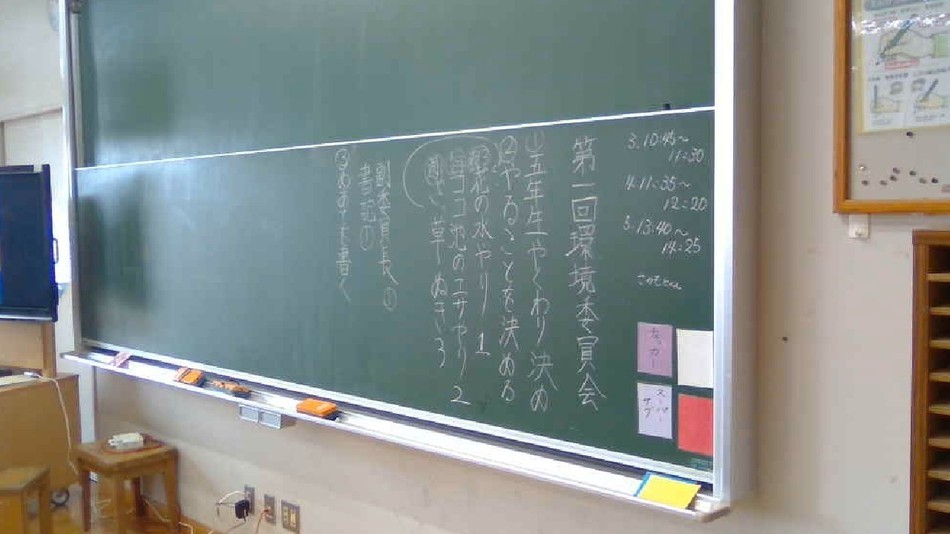 3. 10:45〜
11:30
4. 11:35〜
12:20
5. 13:40〜
14:25
第一回環境委員会
①五年生やくわり決め
②やることを決める
花の水やり 1
ココ池のエサやり 2
草ぬき 3
副委員長①
書記①
③めあてを書く
サッカー
スーパー